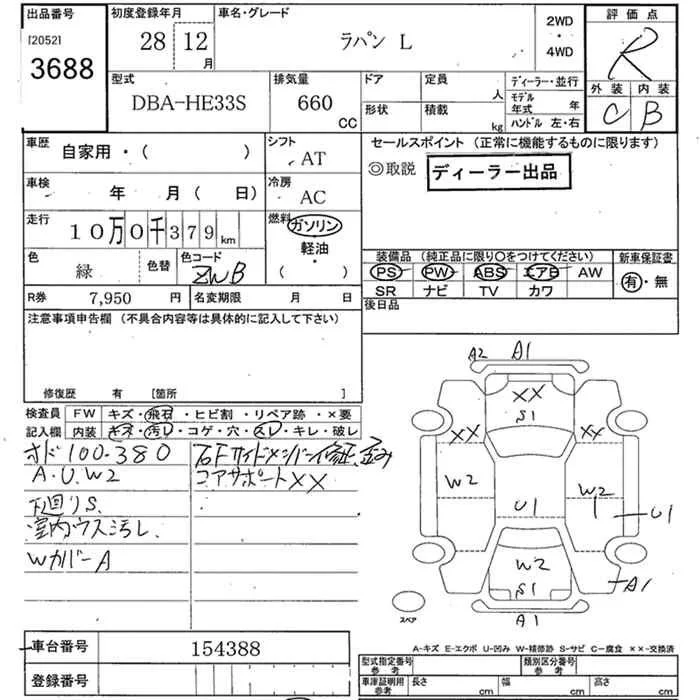 出品番号
[2052]
3688
初度登録年月
28 12
月
車名・グレード
ラパン L
2WD
・
4WD
評価点
R
外装 内装
C B
型式
DBA-HE33S
排気量
660
CC
ドア
形状
定員
人
積載
kg
ディーラー・並行
モデル
年式 年
ハンドル 左・右
車歴
自家用・( )
シフト
AT
車検
年 月( 日)
冷房
AC
走行
10万0千379km
燃料
ガソリン
軽油
・
( )
色
緑
色替
色コード
ZWB
R券 7,950 円
名変期限 月 日
セールスポイント (正常に機能するものに限ります)
◎取説 ディーラー出品
装備品 (純正品に限り○をつけてください)
PS PW ABS エアB AW
SR ナビ TV カワ
新車保証書
有・無
後日品
注意事項申告欄 (不具合内容等は具体的に記入して下さい)
修復歴 有 [箇所 ]
検査員
記入欄
FW キズ・飛石・ヒビ割・リペア跡・×要
内装 キズ・汚レ・コゲ・穴・スレ・キレ・破レ
オド100.380
A.U.W2
下廻りS.
室内ウス汚レ.
WカバーA
右Fサイドメンバー修正、歪み
コアサポートXX
A2 A1
XX
S1
XX
XX
W2
U1
W2
U1
W2
S1
A1
A1
スペア
A-キズ E-エクボ U-凹み W-補修跡 S-サビ C-腐食 ××-交換済
車台番号 154388
登録番号
型式指定番号
参考
類別区分番号
参考
車庫証明用
参考
長さ cm
幅 cm
高さ cm